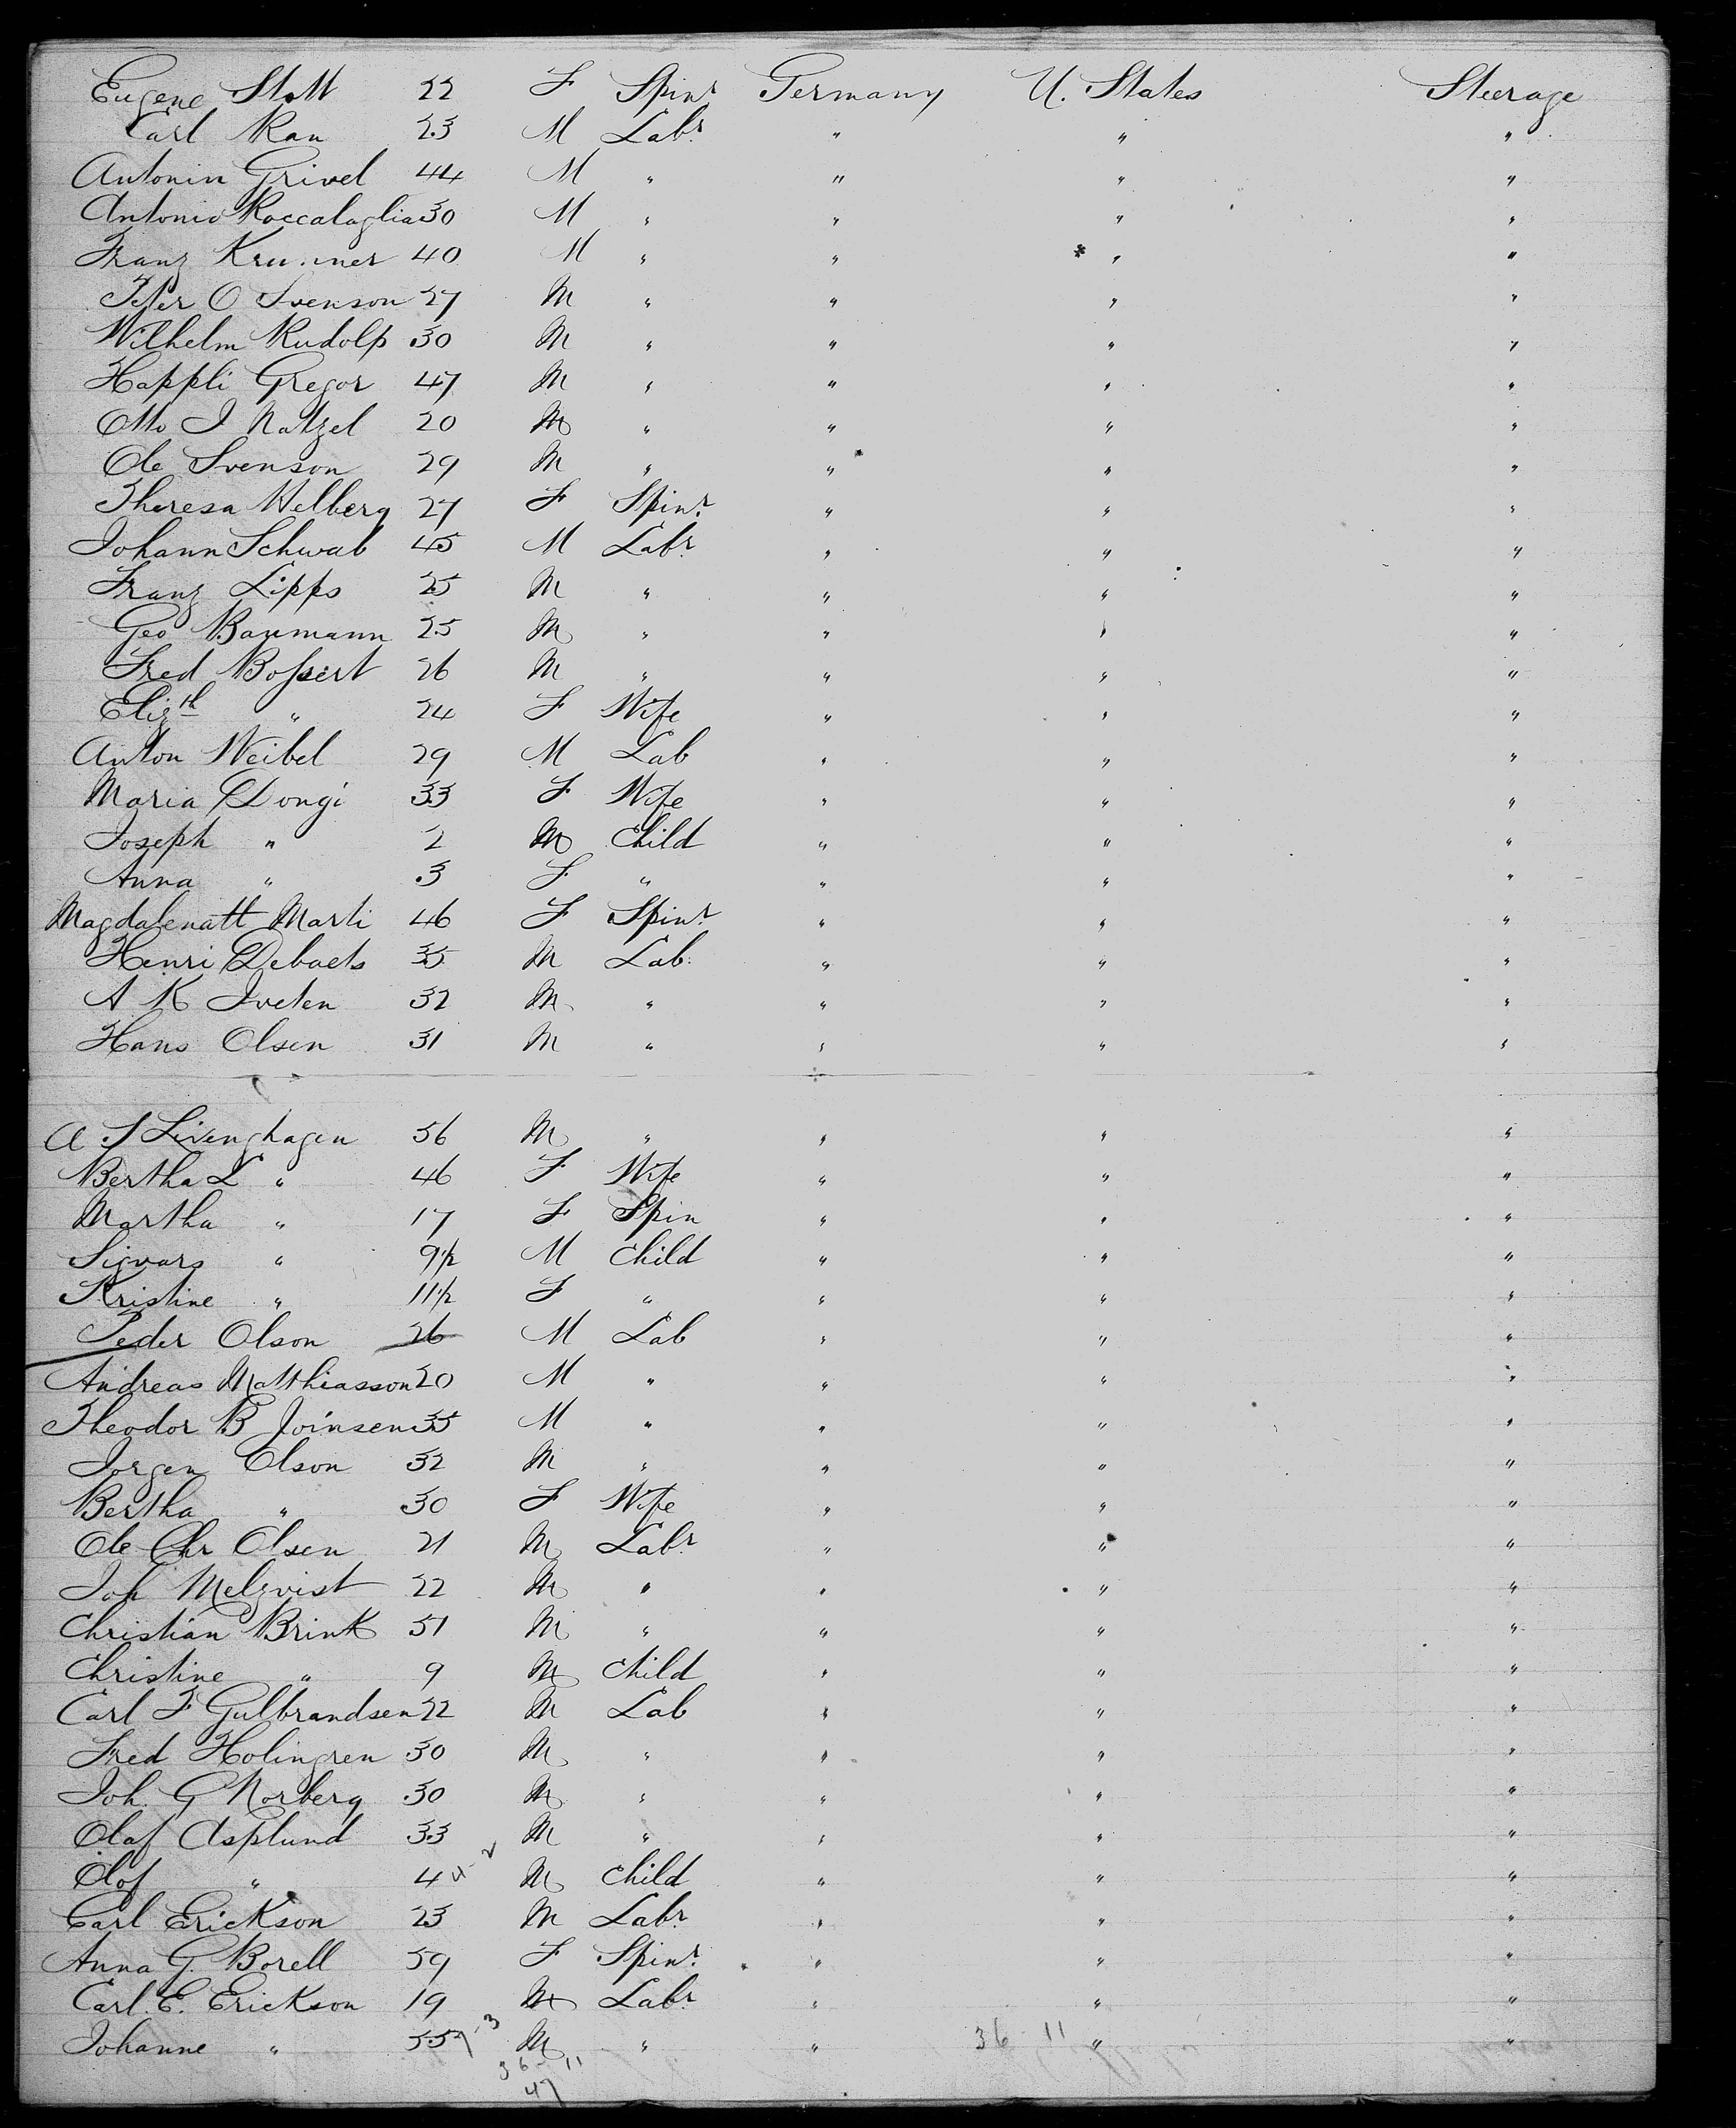 Eugene Stott 22 F Spinr Germany U. States Steerage
Carl Rau 23 M Labr " " "
Antonin Grivel 44 M " " " "
Antonio Roccalaglia 30 M " " " "
Franz 40 M " " " "
Peter O Svenson 27 M " " " "
Wilhelm Rudolp 30 M " " " "
Happli Gregor 47 M " " " "
Otto J Natzel 20 M " " " "
Ole Svenson 29 M " " " "
Theresa Helberg 27 F Spinr " " "
Johann Schwab 45 M Labr " " "
Franz Lipps 25 M " " " "
Geo Baumann 25 M " " " "
Fred Bossert 26 M " " " "
Elizth " 24 F Wife " " "
Anton Weibel 29 M Lab " " "
Maria Dongi 33 F Wife " " "
Joseph " 2 M Child " " "
Anna " 3 F " " " "
Magdalenatt Marti 46 F Spinr " " "
Henri Debaets 35 M Lab " " "
A K Iveten 32 M " " " "
Hans Olsen 31 M " " " "
A S Livenghagen 56 M " " " "
Bertha L " 46 F Wife " " "
Martha " 17 F Spin " " "
Sigvars " 9½ M Child " " "
Kristine " 11½ F " " " "
Peder Olson 26 M Lab " " "
Andreas Matthiasson 20 M " " " "
Theodor B Joinsen 35 M " " " "
Jorgen Olson 32 M " " " "
Bertha " 30 F Wife " " "
Ole Chr Olsen 21 M Labr " " "
Joh Melqvist 22 M " " " "
Christian Brink 51 M " " " "
Christine " 9 M Child " " "
Carl F Gulbrandsen 22 M Lab " " "
Fred Holingren 30 M " " " "
Joh. G Norberg 30 M " " " "
Olaf Asplund 33 M " " " "
Olof " 4 4-2 M Child " " "
Carl Erickson 23 M Labr " " "
Anna G. Borell 59 F Spinr " " "
Carl. E. Erickson 19 M Labr " " "
Johanne " 55 7-3 M " " 36-11 " "
36-11
47